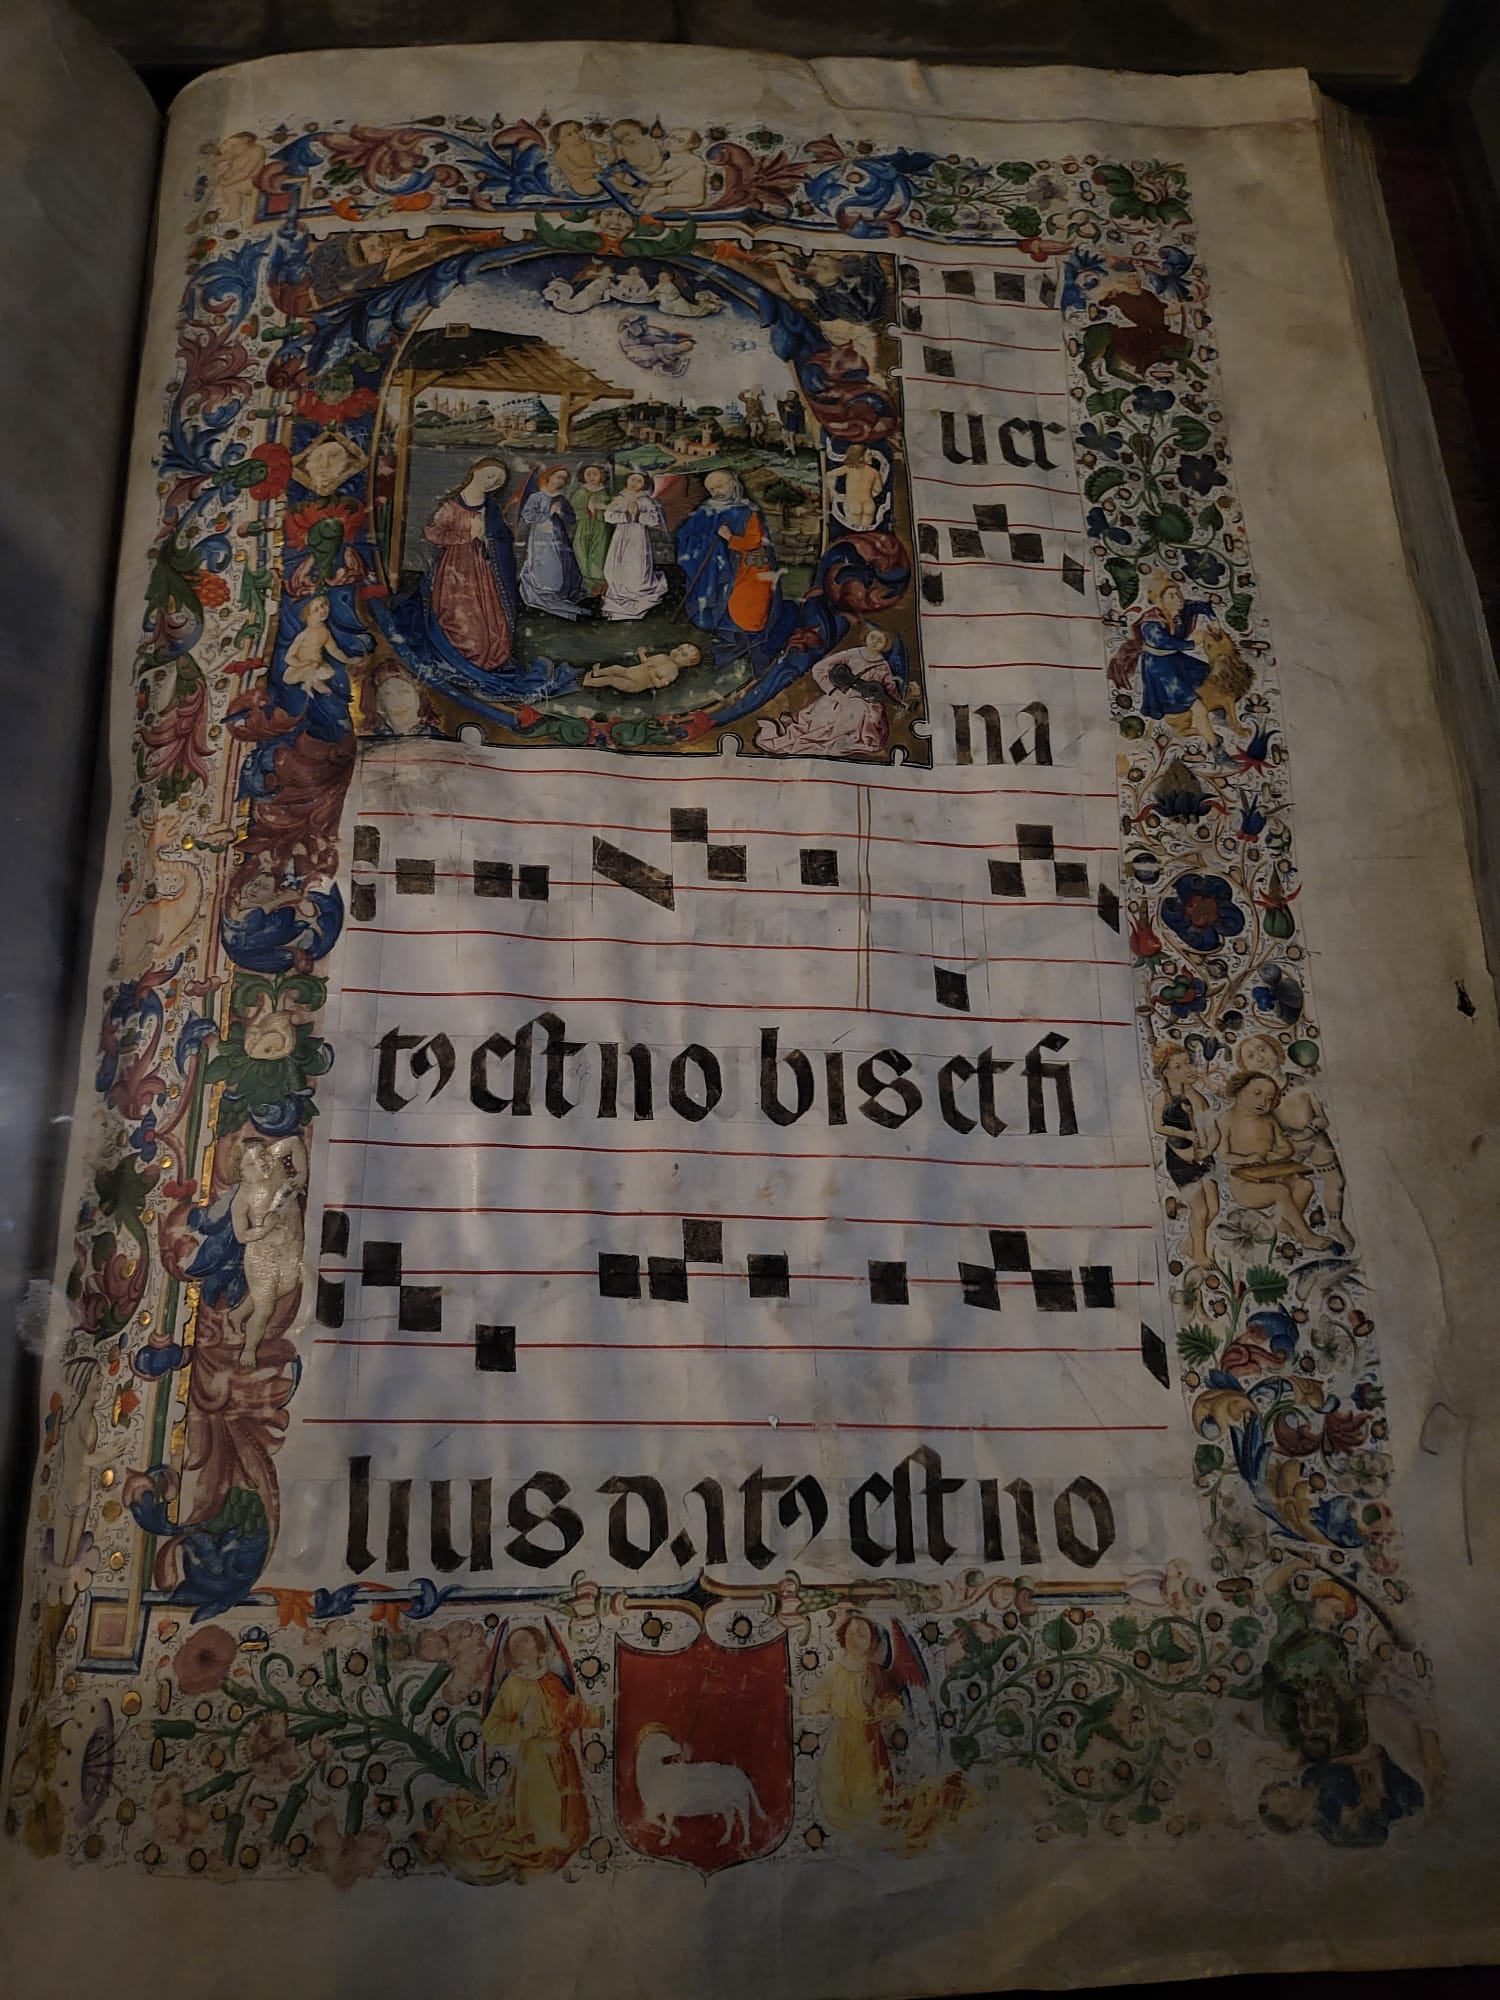 Puer
na
tꝰ est no bis et fi
lius datꝰ est no